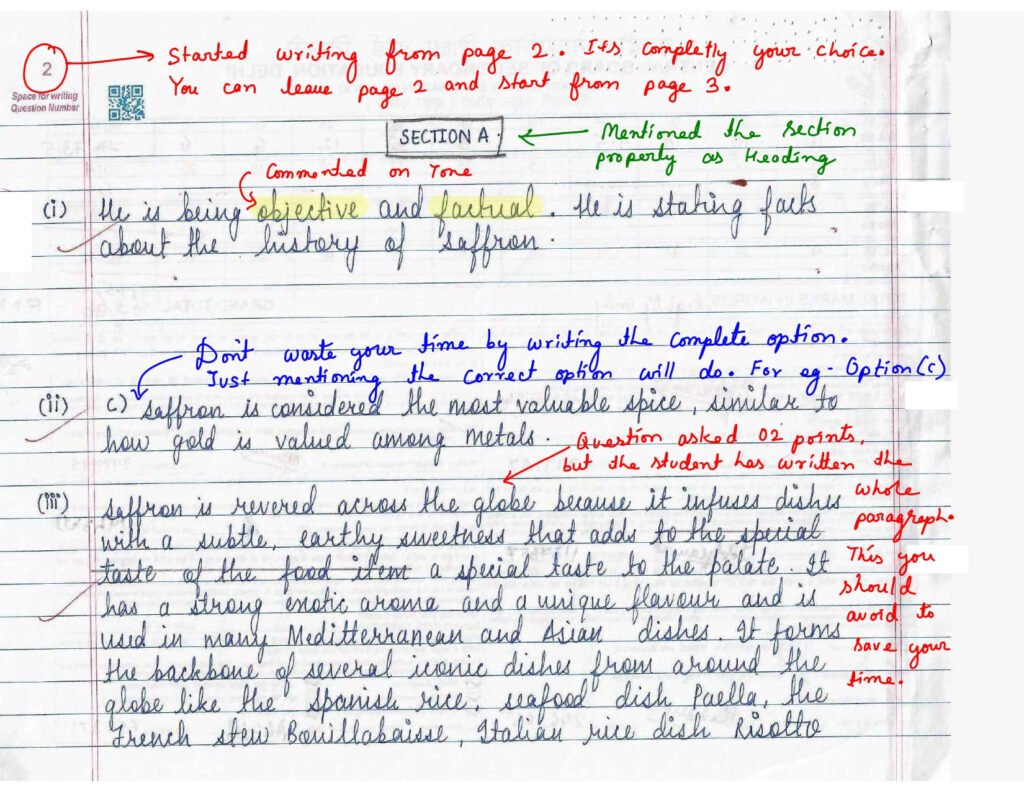 2
Space for writing
Question Number
Started writing from page 2. Its completly your choice.
You can leave page 2 and start from page 3.
SECTION A.
Mentioned the section
properly as Heading
Commented on Tone
(i) He is being objective and factual. He is stating facts
about the history of saffron.
Don't waste your time by writing the complete option.
Just mentioning the correct option will do. For eg- Option (c)
(ii) c) Saffron is considered the most valuable spice, similar to
how gold is valued among metals.
Question asked 02 points,
but the student has written the
whole
paragraph.
This you
should
avoid to
save your
time.
(iii) Saffron is revered across the globe because it infuses dishes
with a subtle, earthy sweetness that adds to the special
taste of the food item a special taste to the palate. It
has a strong exotic aroma and a unique flavour and is
used in many Meditterranean and Asian dishes. It forms
the backbone of several iconic dishes from around the
globe like the Spanish rice, seafood dish Paella, the
French stew Bouillabaisse, Italian rice dish Risotto